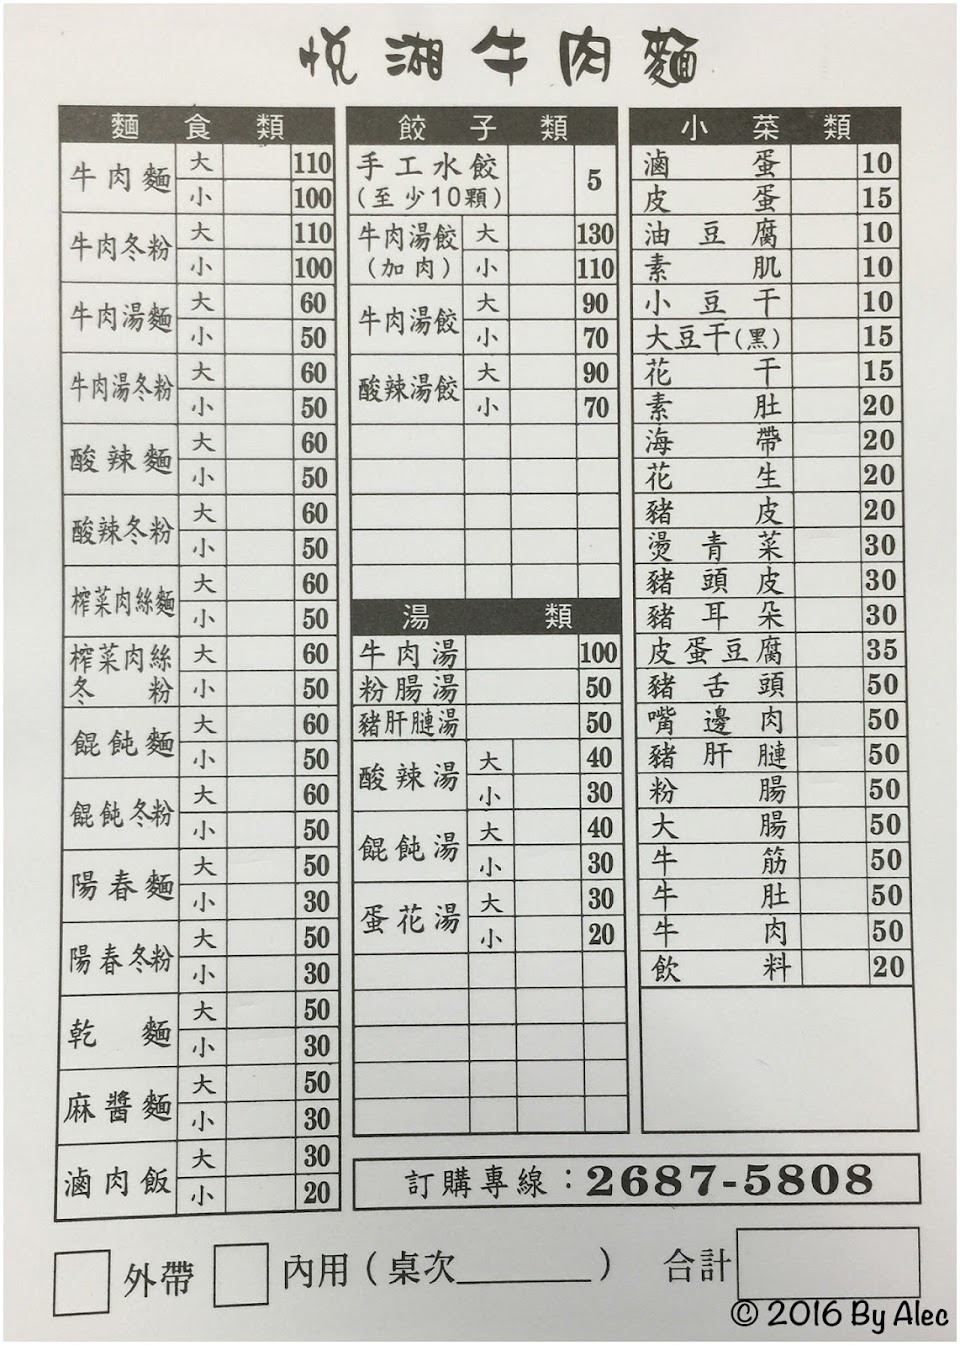 悅湘牛肉麵
麵食類
牛肉麵 大 110
小 100
牛肉冬粉 大 110
小 100
牛肉湯麵 大 60
小 50
牛肉湯冬粉 大 60
小 50
酸辣麵 大 60
小 50
酸辣冬粉 大 60
小 50
榨菜肉絲麵 大 60
小 50
榨菜肉絲 大 60
冬粉 小 50
餛飩麵 大 60
小 50
餛飩冬粉 大 60
小 50
陽春麵 大 50
小 30
陽春冬粉 大 50
小 30
乾麵 大 50
小 30
麻醬麵 大 50
小 30
滷肉飯 大 30
小 20
餃子類
手工水餃 5
(至少10顆)
牛肉湯餃 大 130
(加肉) 小 110
牛肉湯餃 大 90
小 70
酸辣湯餃 大 90
小 70
湯類
牛肉湯 100
粉腸湯 50
豬肝膧湯 50
酸辣湯 大 40
小 30
餛飩湯 大 40
小 30
蛋花湯 大 30
小 20
小菜類
滷蛋 10
皮蛋 15
油豆腐 10
素肌 10
小豆干 10
大豆干(黑) 15
花干 15
素肚 20
海帶 20
花生 20
豬皮 20
燙青菜 30
豬頭皮 30
豬耳朵 30
皮蛋豆腐 35
豬舌頭 50
嘴邊肉 50
豬肝膧 50
粉腸 50
大腸 50
牛筋 50
牛肚 50
牛肉 50
飲料 20
訂購專線：2687-5808
外帶 內用(桌次______) 合計
© 2016 By Alec